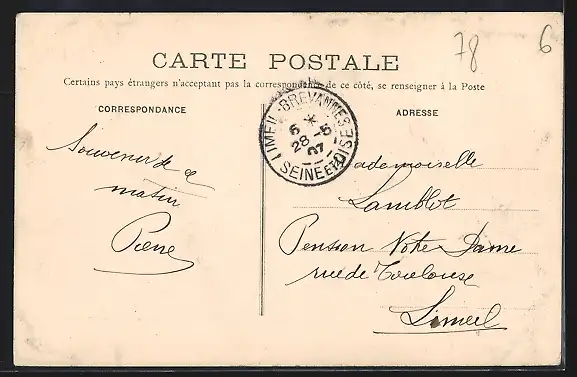 78
6
CARTE POSTALE
Certains pays étrangers n'acceptant pas la correspondance de ce côté, se renseigner à la Poste
CORRESPONDANCE
ADRESSE
LIMEIL-BREVANNES
6 *
28 -5
07
SEINE ET OISE
Souvenir de ce
matin
Pierre
Mademoiselle
Lamblot
Pension Notre Dame
rue de Toulouse
Limeil